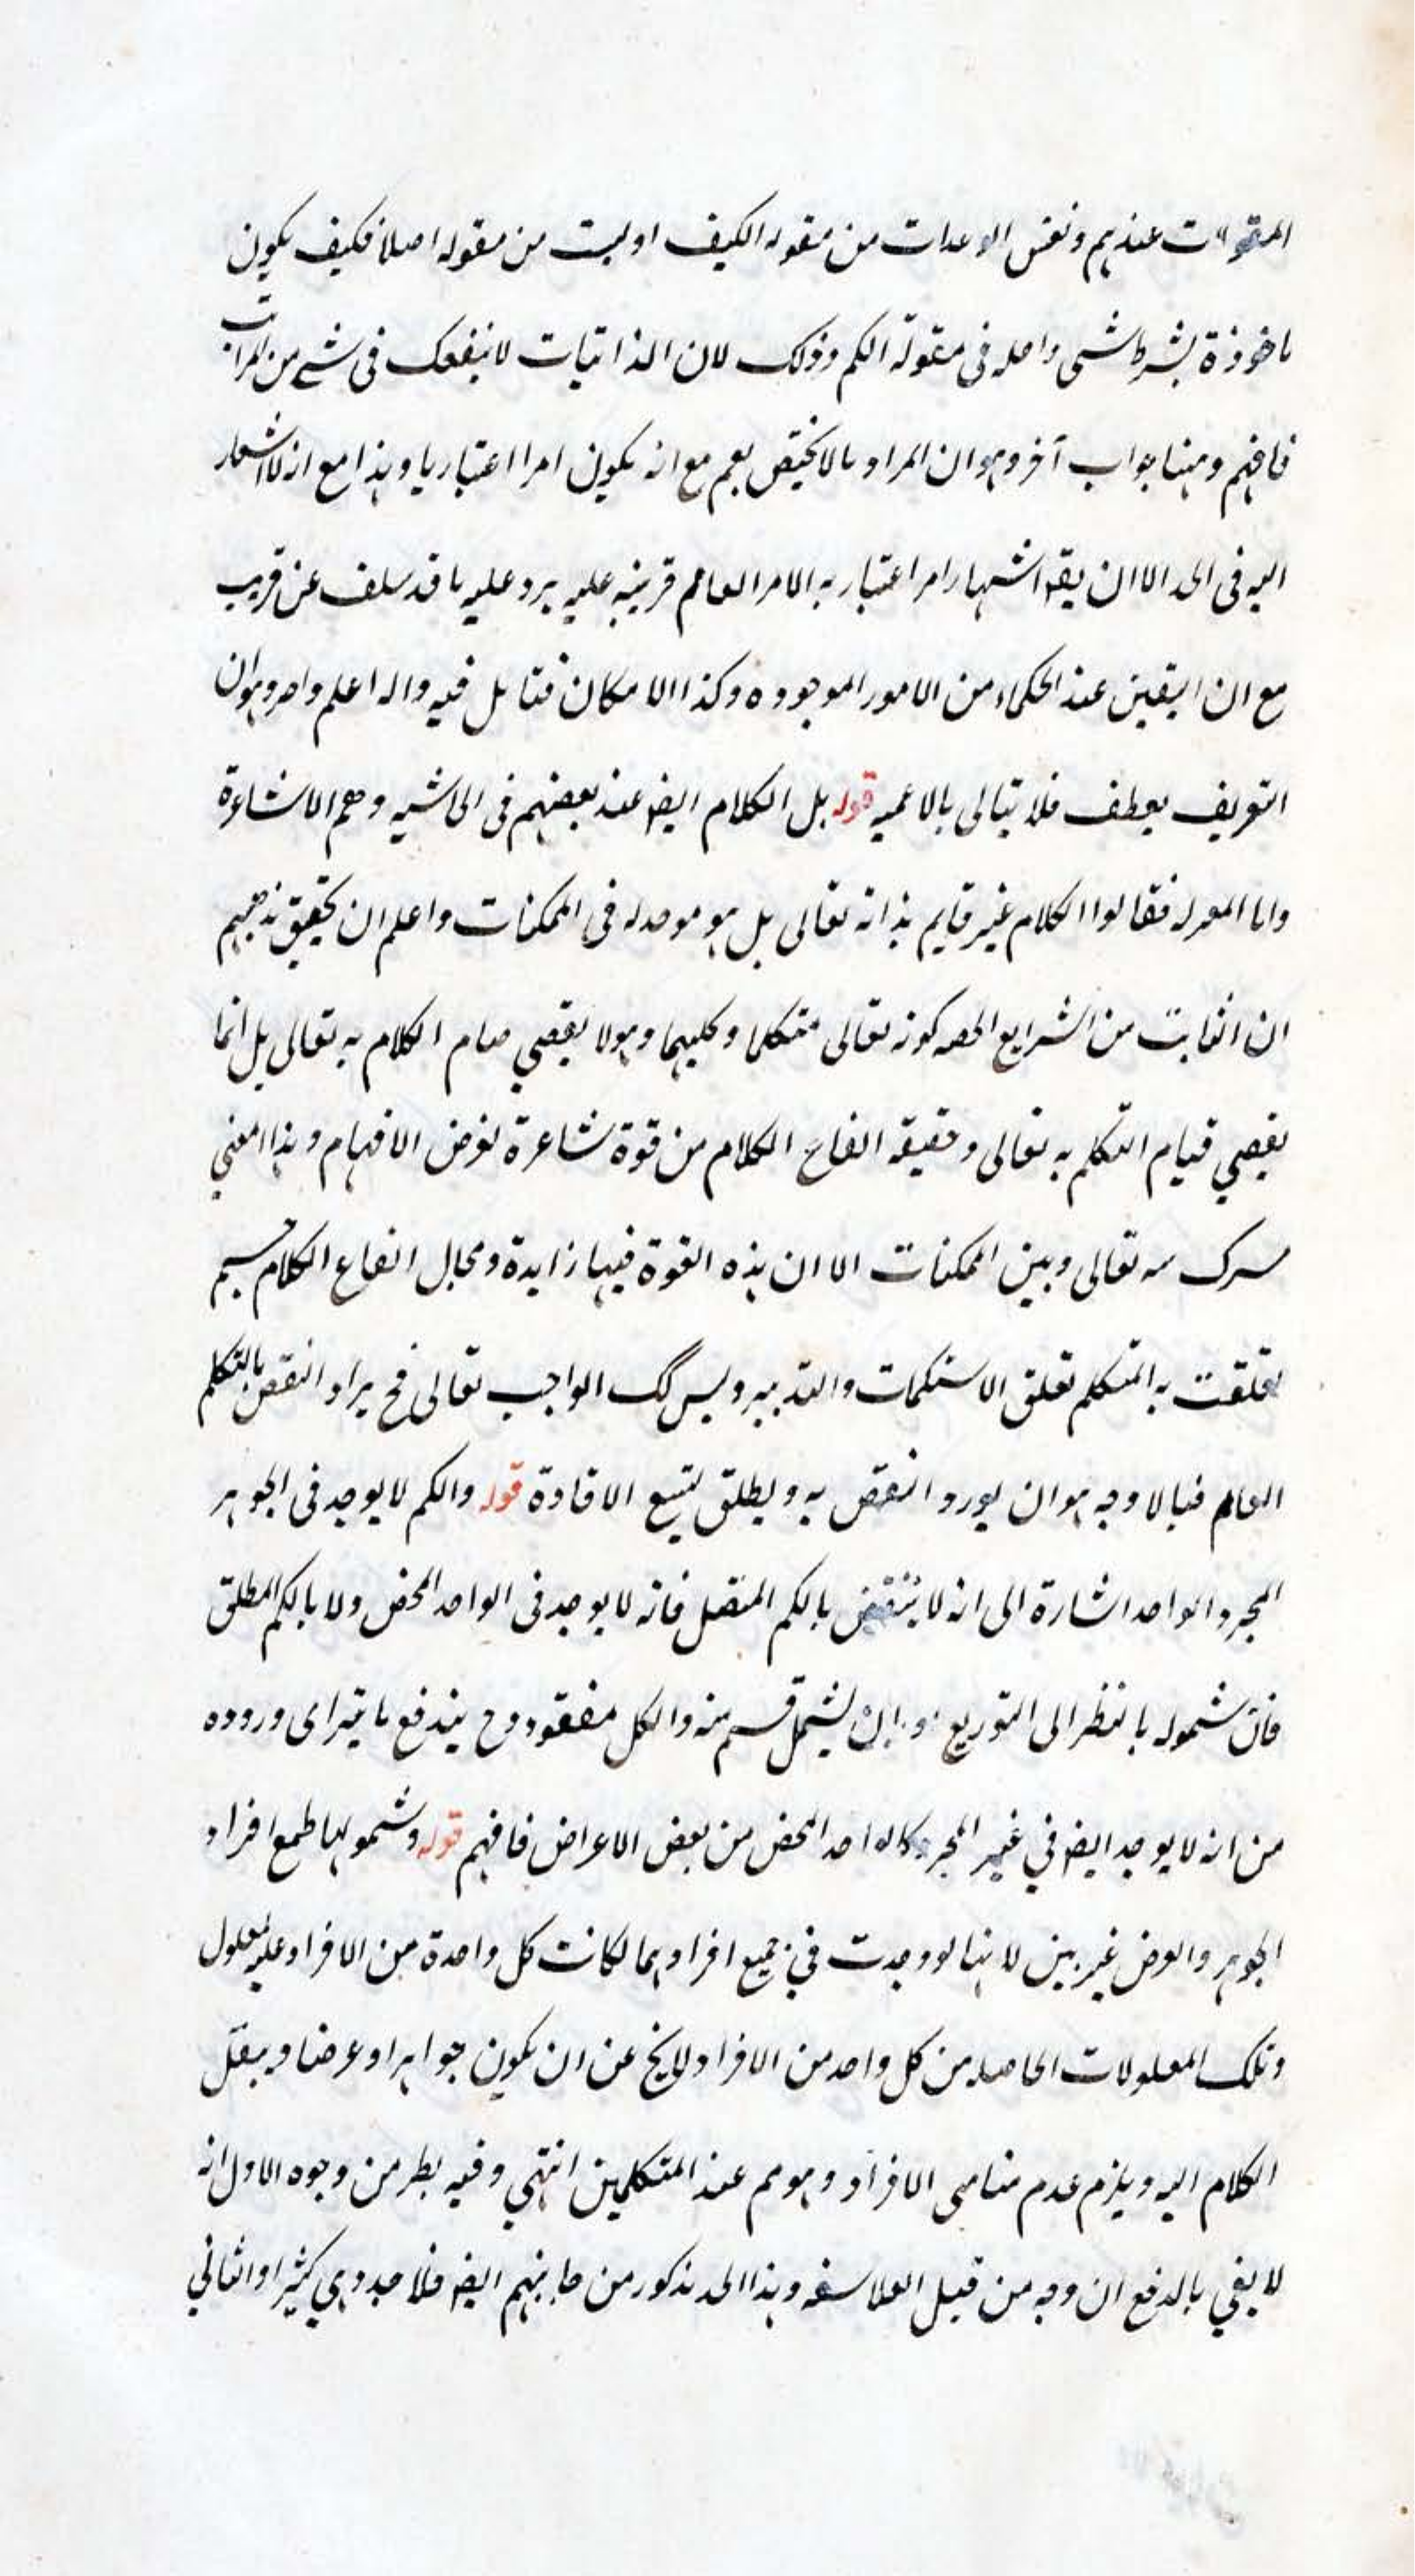 المقولات عندهم ونفس الوحدات من مقوله الكيف او ليست من مقوله اصلا فكيف يكون
ماخوذة بشرط شى داخله فى مقولة الكم وذلك لان الذاتيات لا ينفك فى شے من المراتب
فافهم وههنا جواب آخر وهو ان المراد بما لا يختص بعم مع انه يكون امرا اعتباريا وهذا مع انه لا اشعار
اليه فى الحد الا ان يقو اشتهار امر اعتباريه الامر العام قرينه عليه يرد عليه ما قد سلف عن قريب
مع ان اليقين عند الحكماء من الامور الموجوده وكذا الامكان فتامل فيه والله اعلم وهو ان
التعريف فلا تبالى بالاعميه قوله بل الكلام ايضا عند بعضهم فى الحاشيه وهم الاشاعرة
واما المعرله فقالوا الكلام غير قايم بذاته تعالى بل هو موحدله فى الممكنات واعلم ان تحقيق مذهبهم
ان الثابت من الشرايع كونه تعالى متكلما وكليما وهو لا يقصي صام الكلام به تعالى بل انما
يقصي قيام التكلم به تعالى وحقيقه الفاع الكلام من قوة شاعرة لغرض الافهام وهذا المعني
سرك سه تعالى وبين الممكنات الا ان هذه القوة فيها زايدة ومحال انفاع الكلام جسم
تعلقت به المتكلم تعلق الاستكمات والتدبير وليس كك الواجب تعالى فح يراد النقص بالتكلم
العام فبالاوجه هو ان يورد النقص به ويطلق ليتسع الافادة قوله والكم لا يوجد فى الجوهر
المجرد الواحد اشارة الى انه لا ينتقض بالكم المتصل فانه لا يوجد فى الواحد المحض ولا بالكم المطلق
فان شموله بالنظر الى التوزيع او بان يشمل قسم منه والكل مفقود وح يندفع ما يتراى وروده
من انه لا يوجد ايضا في غير المجرد كالواحد المحض من بعض الاعراض فافهم قوله وشمولها لجميع افراد
الجوهر والعرض غير بين لانها لو وجدت في جميع افرادهما لكانت كل واحدة من الافراد عليه لمعلول
وتلك المعلولات الحاصله من كل واحد من الافراد لايخ عن ان يكون جواهر او عرضا وينقل
الكلام اليه ويلزم عدم تناهى الافراد وهو مم عند المتكلمين انتهي وفيه نظر من وجوه الاول انه
لا يفي بالدفع ان وجه من قبل الفلاسفه وهذا الحد مذكور من جانبهم ايضا فلا جدوي كثيرا والثاني